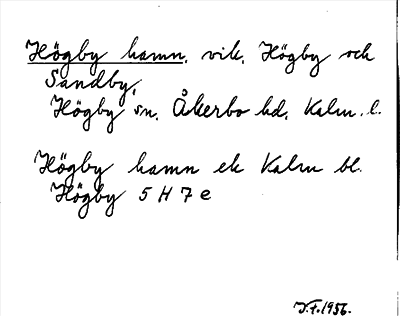 Högby hamn, vik, Högby och
Sandby,
Högby sn, Åkerbo hd, Kalm. l.
Högby hamn ek Kalm bl.
Högby 5 H 7 e
1956.